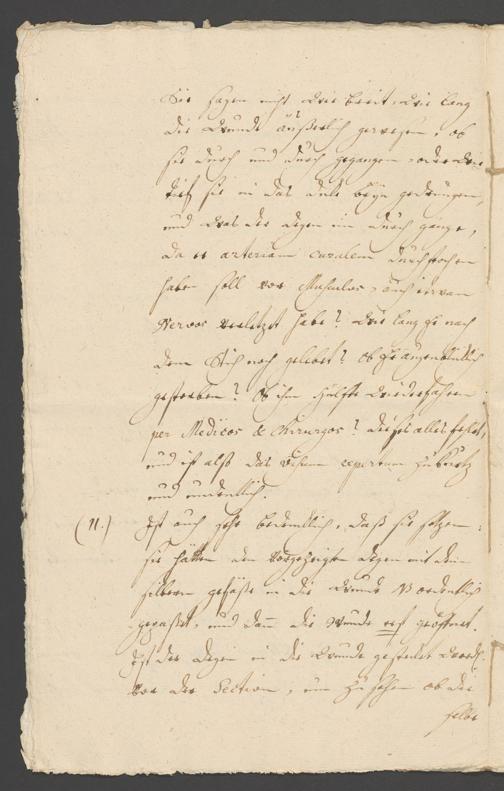 Sie sagen nicht wie breit, wie lang
die Wunde äußerlich gewesen, ob
sie durch und durch gegangen, oder wie
tief sie in das dicke bein gedrungen,
und was der degen im durch gange,
da er arteriam cruralem durchstochen
haben soll vor Musculos, auch etwan
Nervos verletzet habe? Wie lang er nach
dem Stich noch gelebet? Ob er augenblicklich
gestorben? Ob ihm Hülffe wiederfahren
per Medicos & Chirurgos? dieses alles fehlet,
und ist also das Visum repertum zu kurtz
und undeutlich.
(11.) Ist auch sehr bedencklich, daß sie setzen:
sie hätten den vorgezeigten degen mit dem
silbern gefäße in die Wunde ordentlich
gepasset, und dann die Wunde erst geöffnet.
Ist der degen in die Wunde gestecket word.
vor der Section, um zu sehen ob die
selbe